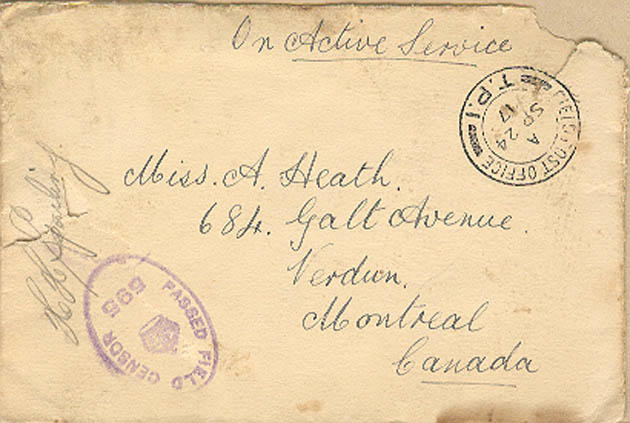 On Active Service
FIELD POST OFFICE
T.P.1
A
SP 24
17
Miss. A. Heath.
684. Galt Avenue.
Verdun.
Montreal
Canada
PASSED FIELD CENSOR